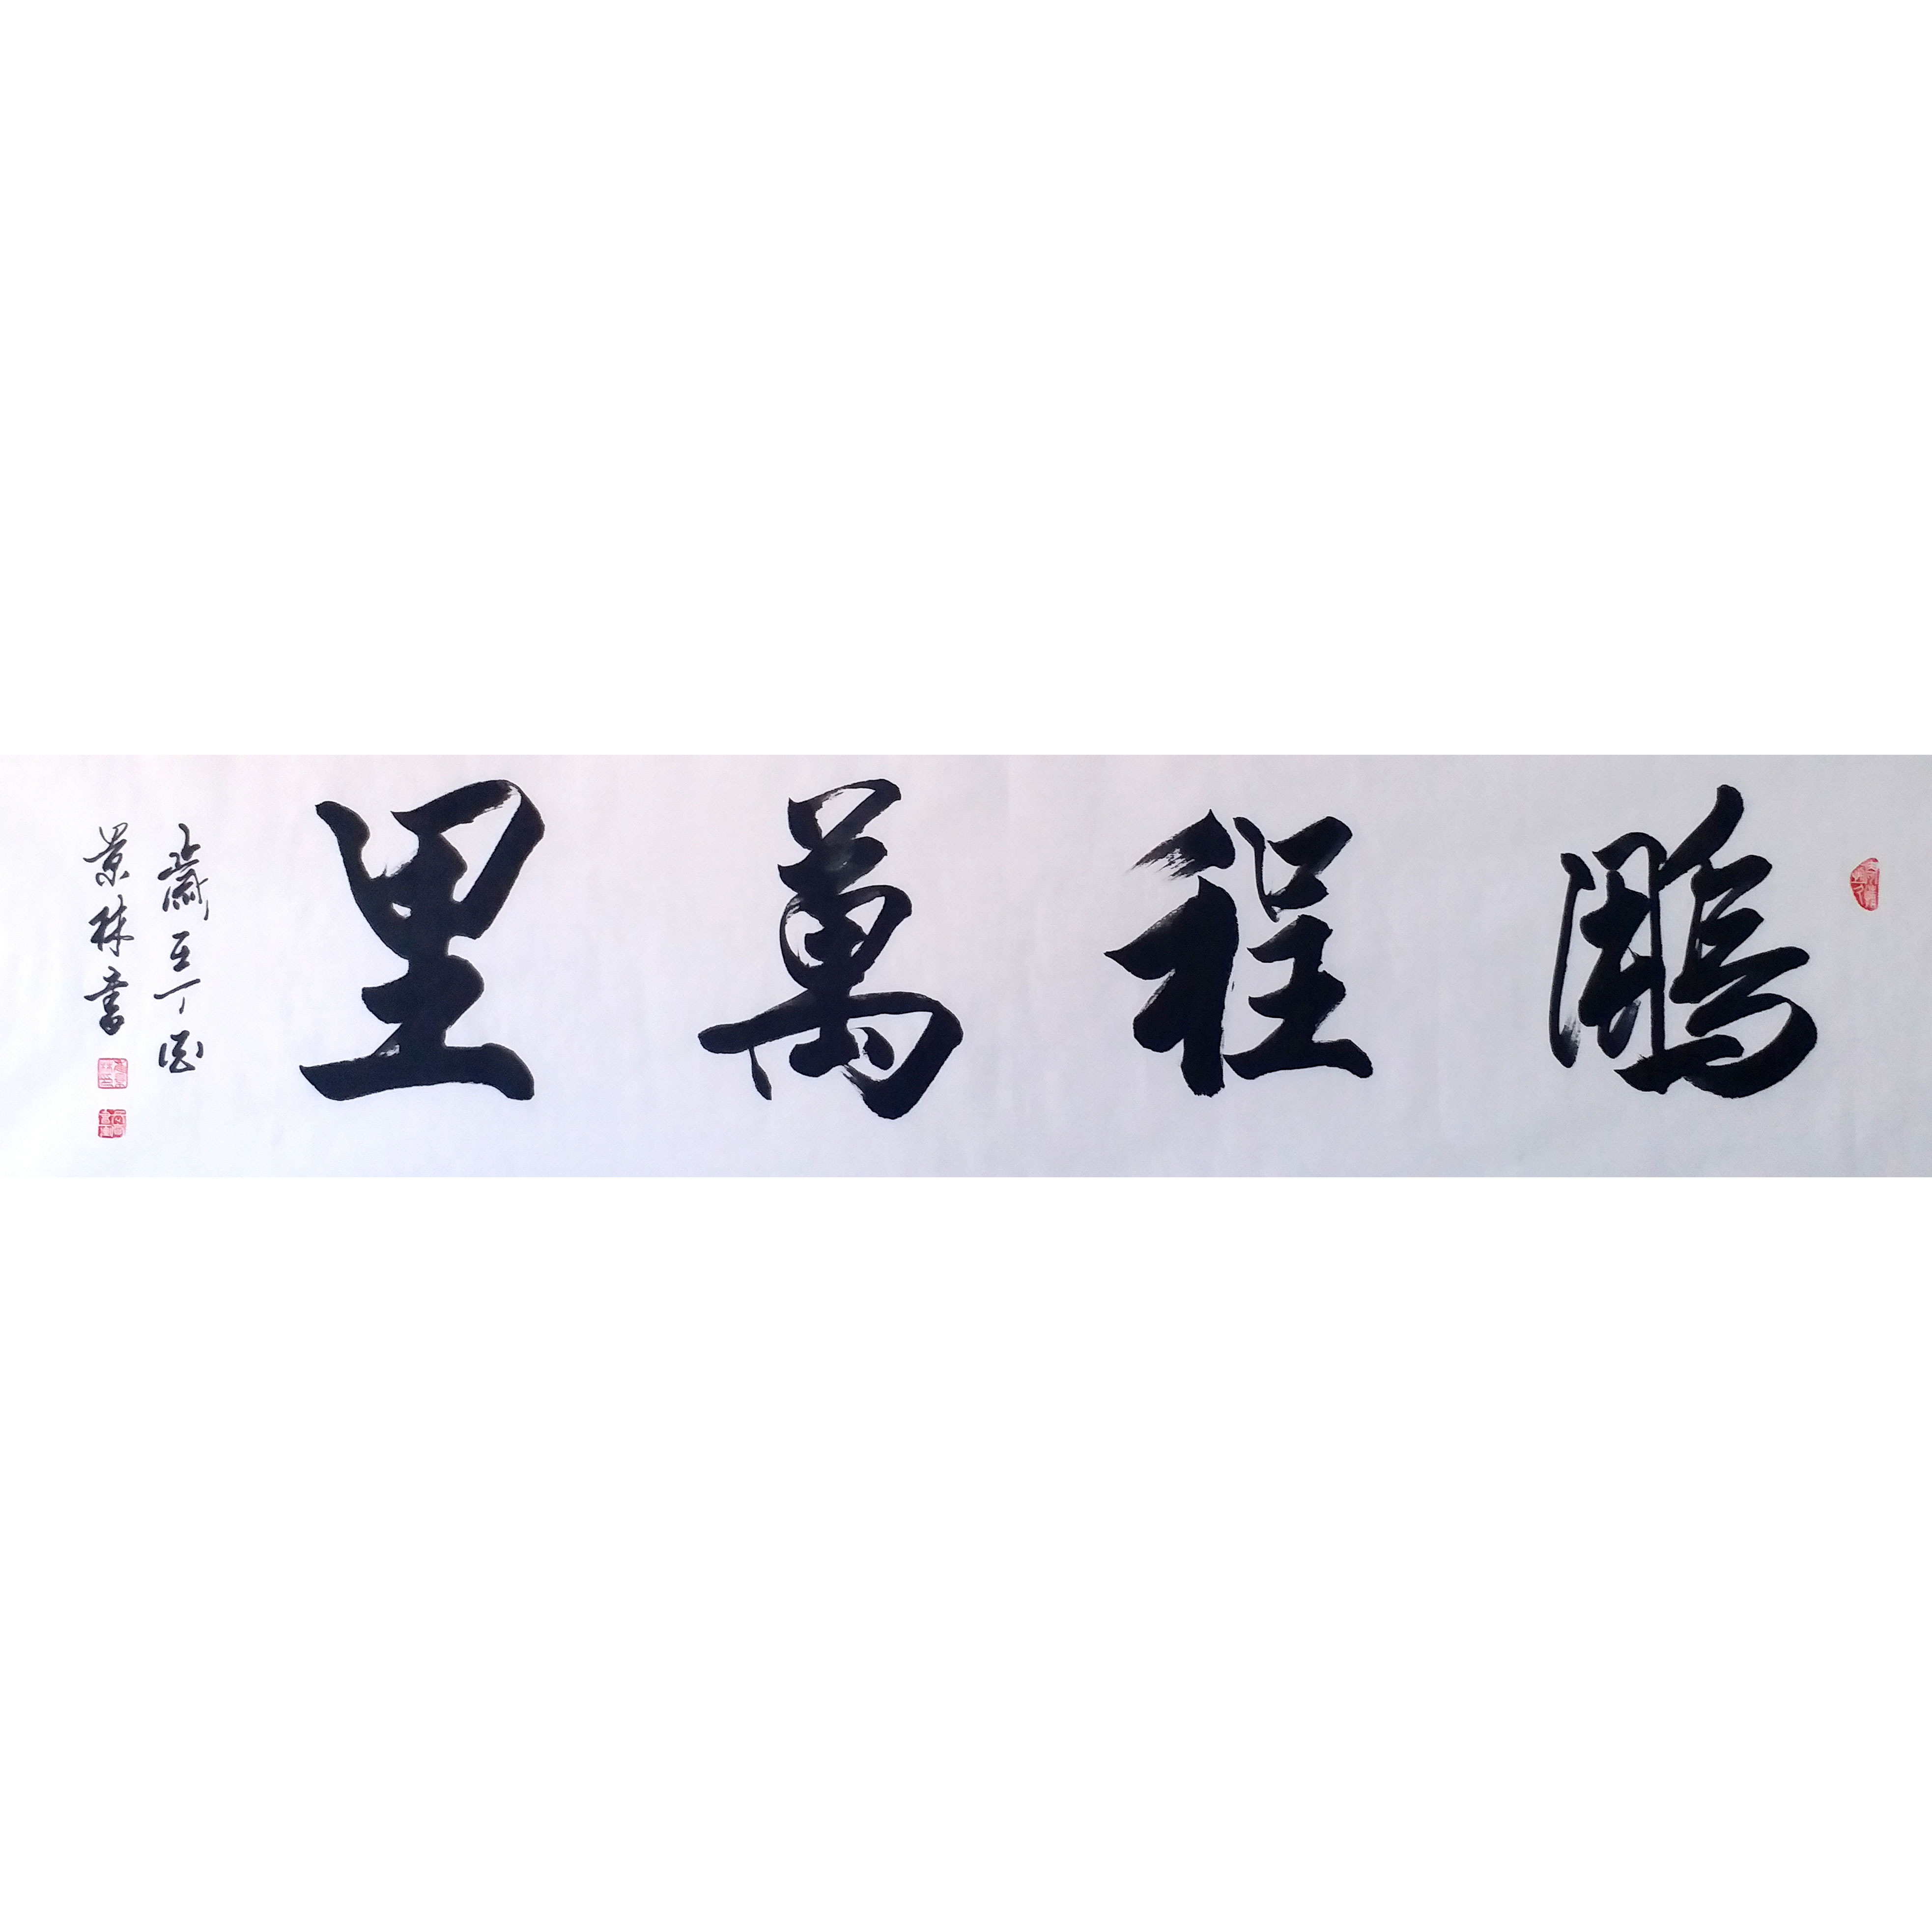 鵬程萬里
歲在丁酉
景林書